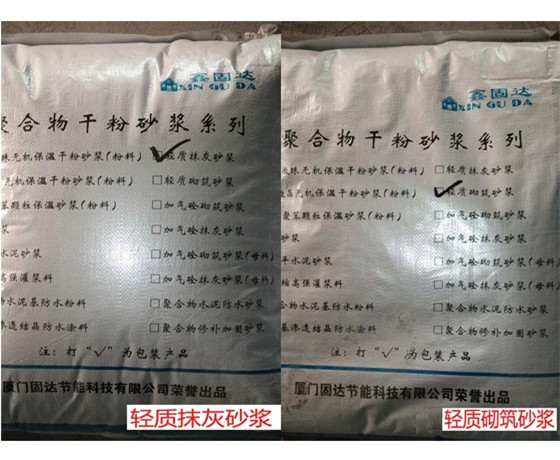 鑫固达
XIN GU DA
聚合物干粉砂浆系列
珠无机保温干粉砂浆(粉料)
轻质抹灰砂浆
无机保温干粉砂浆(粉料)
轻质砌筑砂浆
聚苯颗粒保温砂浆(粉料)
加气砼砌筑砂浆
砂浆
加气砼抹灰砂浆
水泥砂浆
加气砼砌筑砂浆(母料)
高强灌浆料
加气砼抹灰砂浆(母料)
物水泥基防水粉料
聚合物水泥防水砂浆
渗透结晶防水涂料
聚合物修补加固砂浆
注:打“√”为包装产品
厦门固达节能科技有限公司荣誉出品
轻质抹灰砂浆
鑫固达
XIN GU DA
聚合物干粉砂浆系列
珠无机保温干粉砂浆(粉料)
轻质抹灰砂浆
无机保温干粉砂浆(粉料)
轻质砌筑砂浆
聚苯颗粒保温砂浆(粉料)
加气砼砌筑砂浆
砂浆
加气砼抹灰砂浆
平水泥砂浆
加气砼砌筑砂浆(母料)
高强灌浆料
加气砼抹灰砂浆(母料)
物水泥基防水粉料
聚合物水泥防水砂浆
基渗透结晶防水涂料
聚合物修补加固砂浆
注:打“√”为包装产品
厦门固达节能科技有限公司荣誉出品
轻质砌筑砂浆